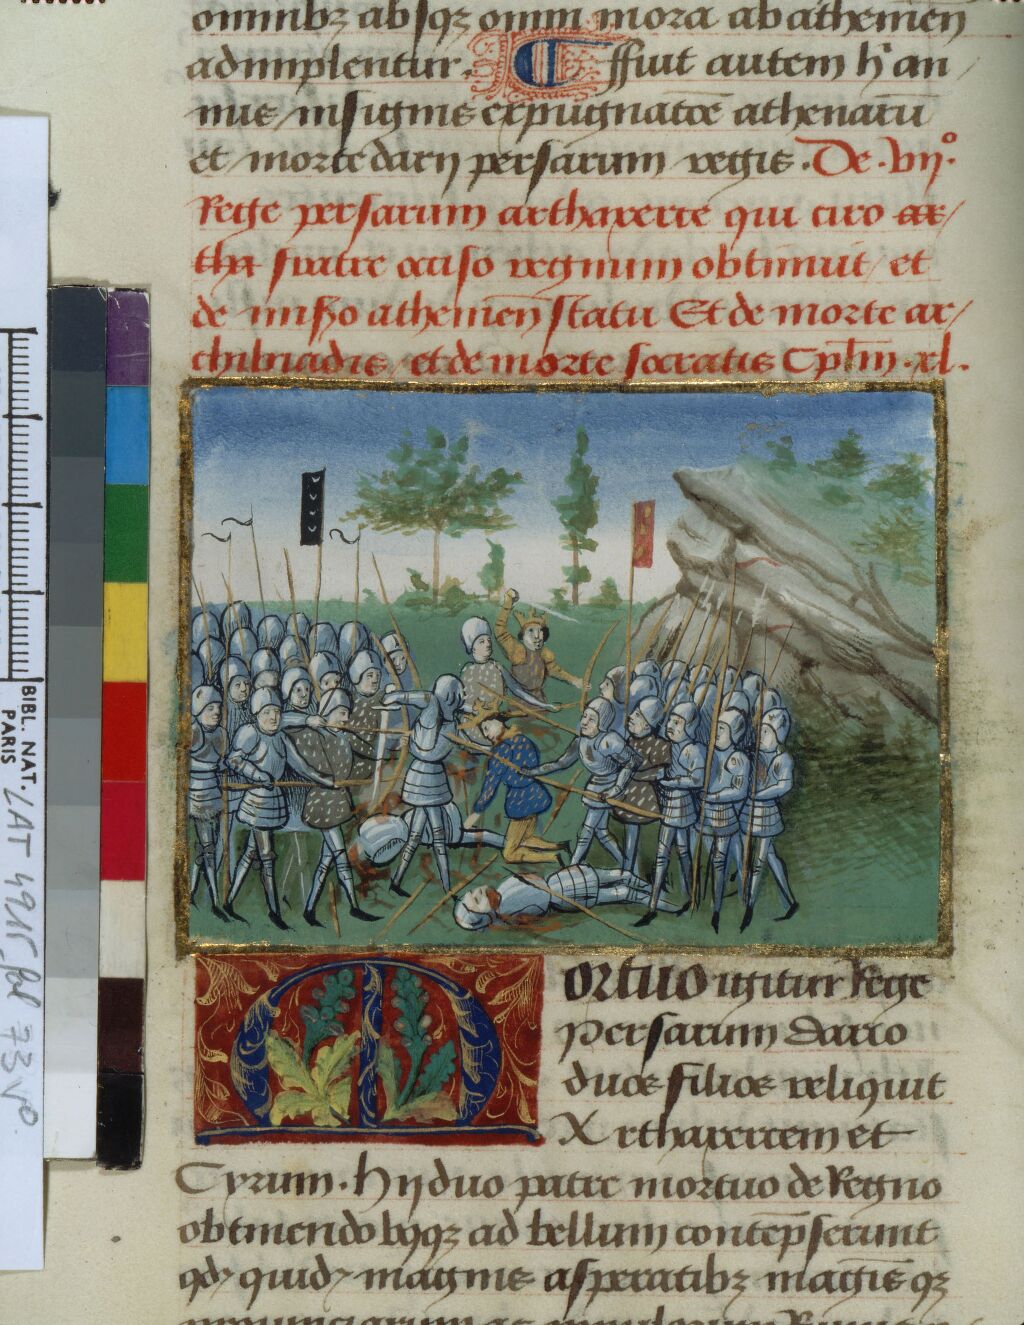 omnibꝫ absqꝫ omni mora ab athenien
adimplentur. Effluit autem h̄ an
nus insignis expugnatōe athenarū
et morte darij persarum regis. De .vijͦ.
Rege persarum arthaxerxe qui ciro ar/
tha fratre occiso regnum obtinuit / et
de misero athenien̄ statu Et de morte ar/
chibiadis / et de morte socratis Cplm̄ .xl.
ORTUO igitur Rege
Persarum dario
duos filios reliquit
Arthaxerxem et
Cyrum. Hij duo patre mortuo de Regno
obtinendo ad bellum
magnis asperatibꝫ
BIBL. NAT.
PARIS
LAT 4915, fol 73 vo.